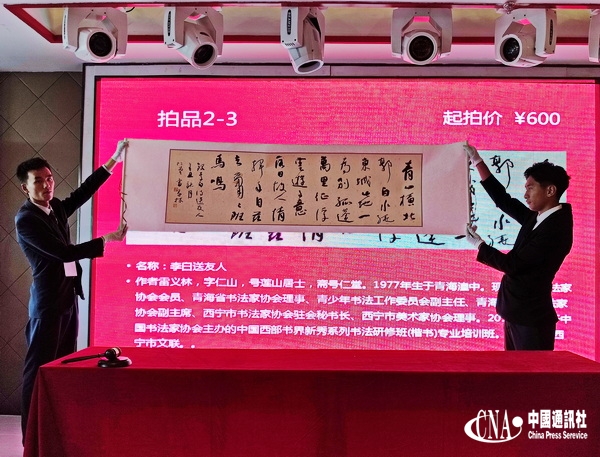 拍品2-3
起拍价 ¥600
青山橫北
郭白水繞
東城此地一
為別孤蓬
萬里征浮
雲遊子意
落日故人情
揮手自茲
去蕭蕭班
馬鳴
• 名称：李曰送友人
• 作者雷义林，字仁山，号莲山居士，斋号仁堂。1977年生于青海湟中。现 法家
协会会员、青海省书法家协会理事、青少年书法工作委员会副主任、青海 家
协会副主席、西宁市书法家协会驻会秘书长、西宁市美术家协会理事。20 中
国书法家协会主办的中国西部书界新秀系列书法研修班(楷书)专业培训班。
宁市文联。。
CNA 中國通訊社
China Press Serevice